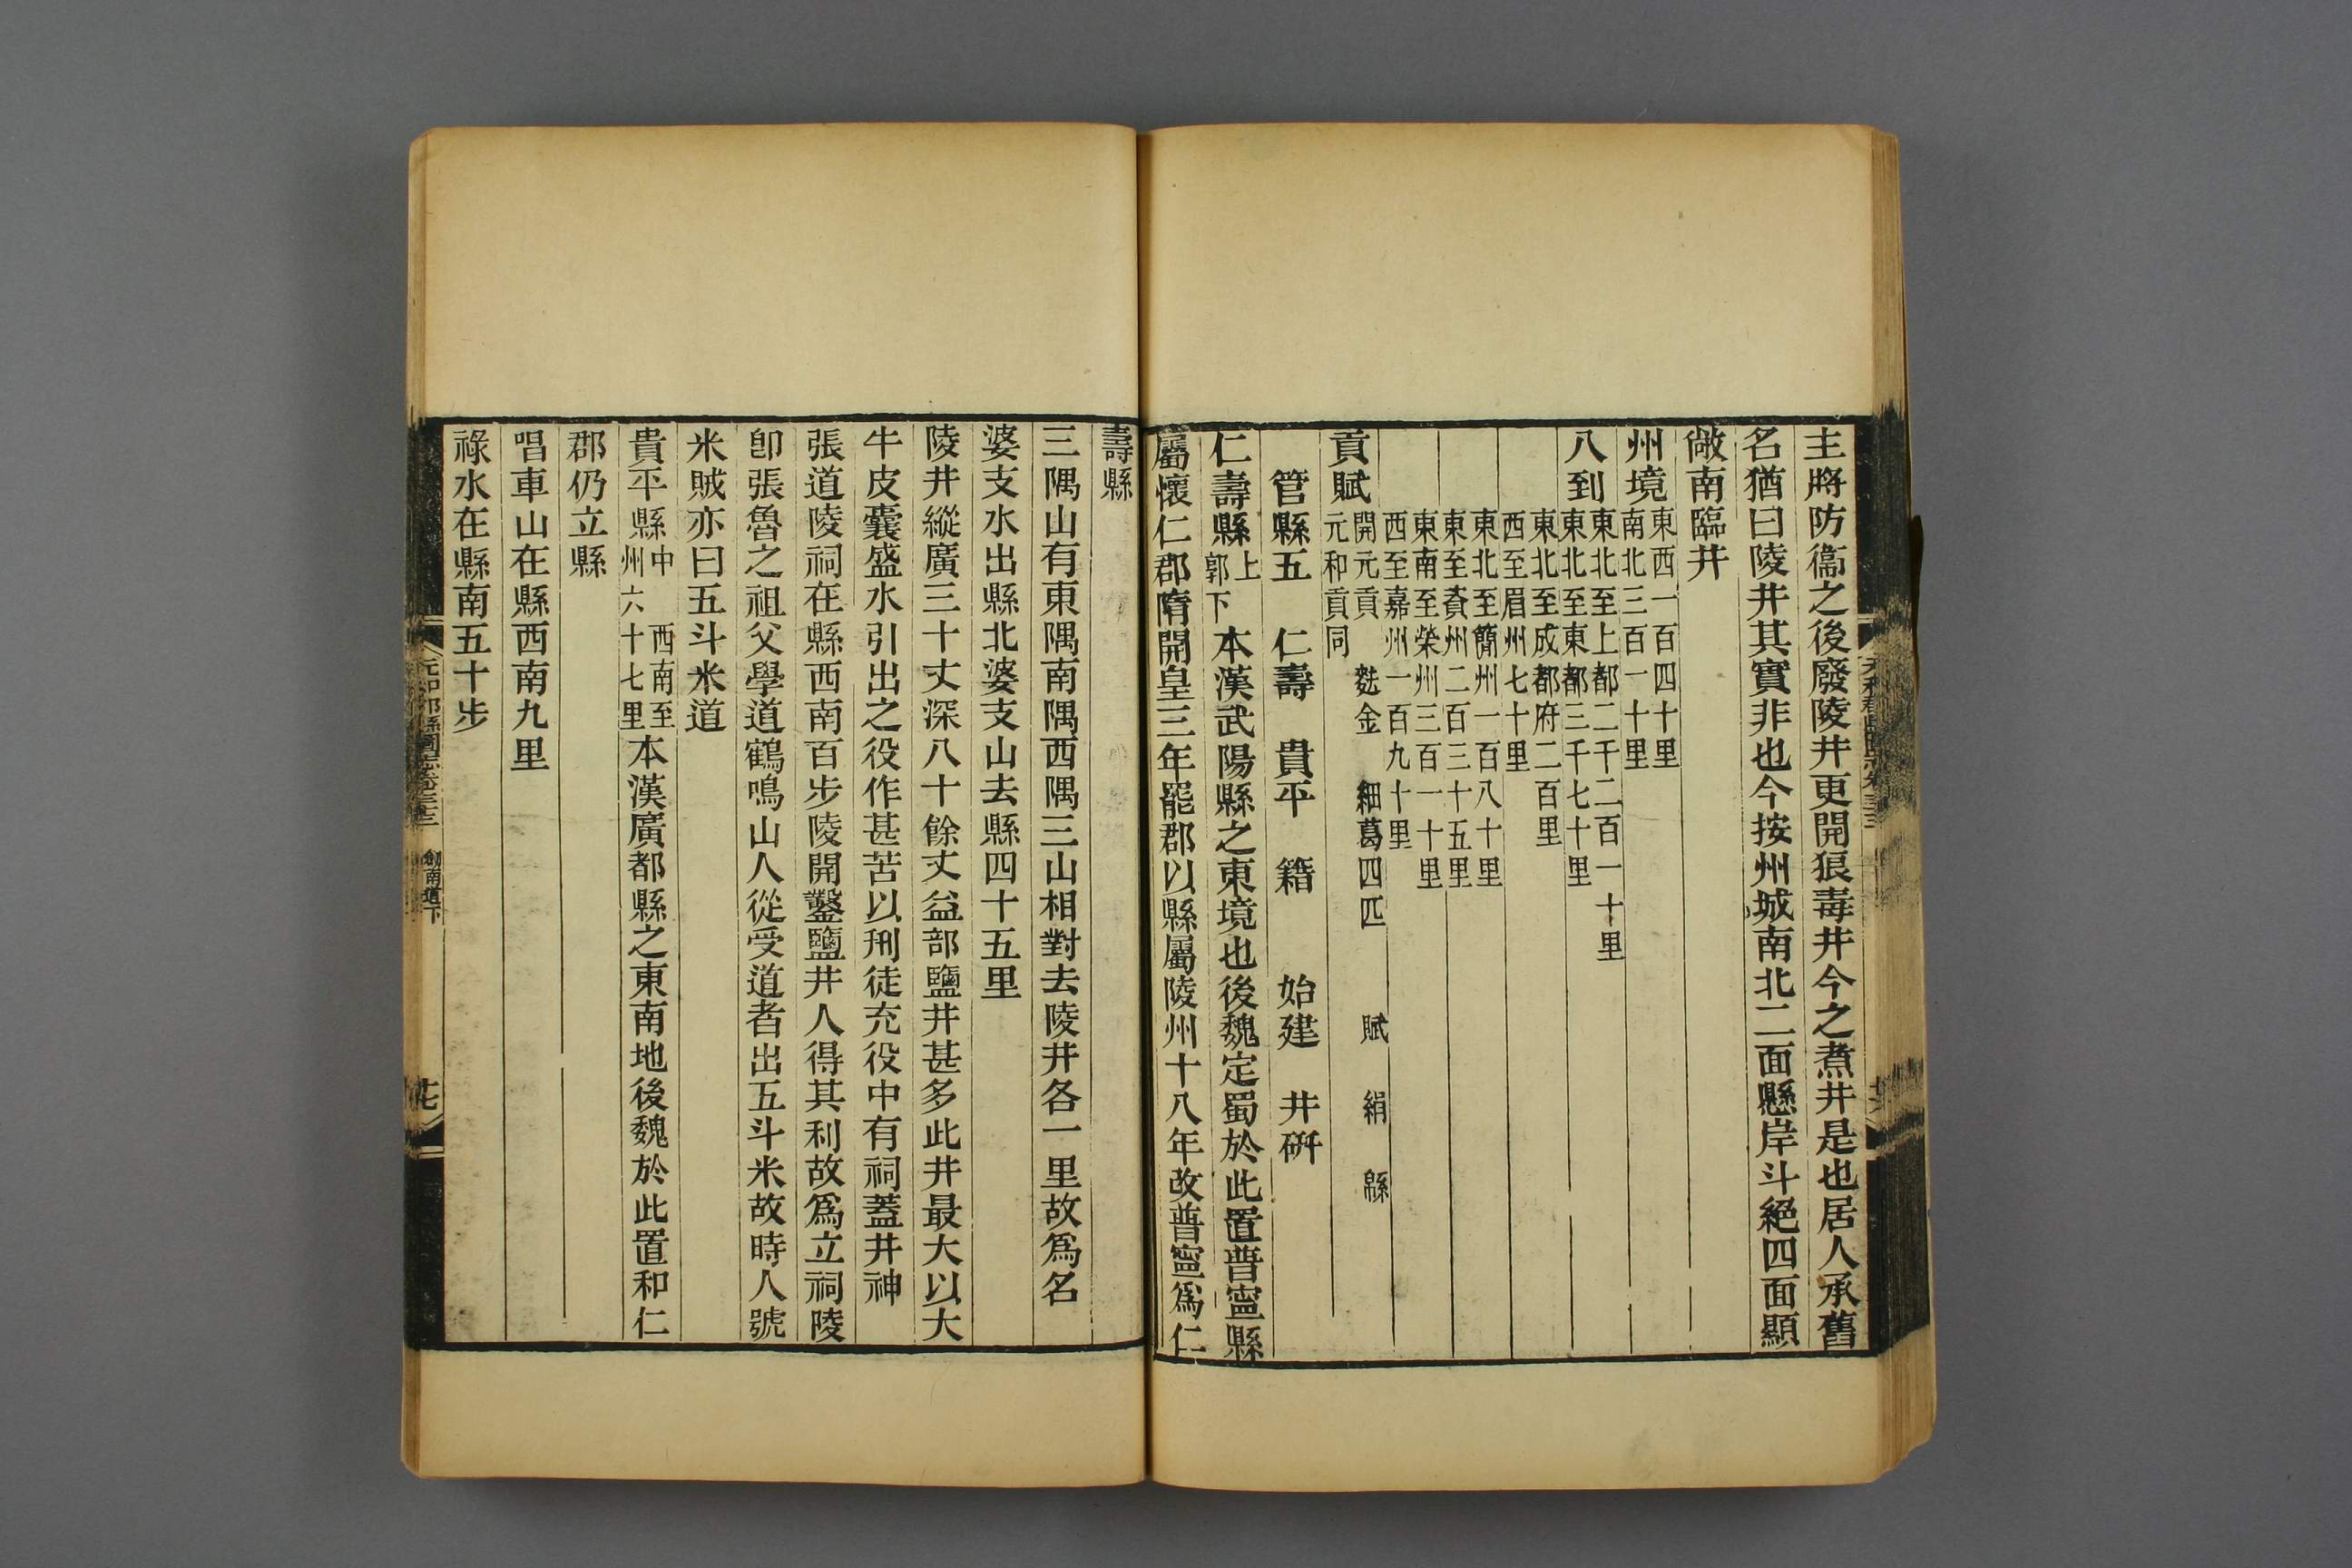 主將防衞之後廢陵井更開狼毒井今之煮井是也居人承舊
名猶曰陵井其實非也今按州城南北二面懸岸斗絕四面顯
敞南臨井
州境東西一百四十里
南北三百一十里
八到東北至上都二千二百一十里
東北至東都三千七十里
東北至成都府二百里
西至眉州七十里
東北至簡州一百八十里
東至資州二百三十五里
東南至榮州三百一十里
西至嘉州一百九十里
貢賦開元貢 麩金 細葛四匹 賦 絹 緜
元和貢同
管縣五 仁壽 貴平 籍 始建 井研
仁壽縣上
郭下
本漢武陽縣之東境也後魏定蜀於此置普寧縣
屬懷仁郡隋開皇三年罷郡以縣屬陵州十八年改普寧爲仁
壽縣
三隅山有東隅南隅西隅三山相對去陵井各一里故爲名
婆支水出縣北婆支山去縣四十五里
陵井縱廣三十丈深八十餘丈益部鹽井甚多此井最大以大
牛皮囊盛水引出之役作甚苦以刑徒充役中有祠蓋井神
張道陵祠在縣西南百步陵開鑿鹽井人得其利故爲立祠陵
卽張魯之祖父學道鶴鳴山人從受道者出五斗米故時人號
米賊亦曰五斗米道
貴平縣中 西南至
州六十七里
本漢廣都縣之東南地後魏於此置和仁
郡仍立縣
唱車山在縣西南九里
祿水在縣南五十步
元和郡縣圖志卷三十三 劍南道下 十七